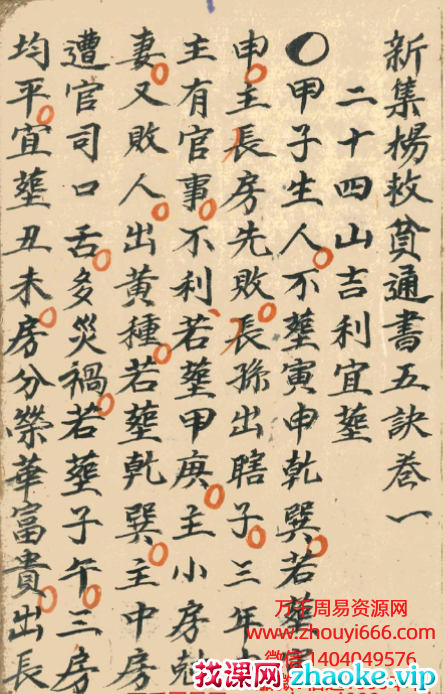 新集楊救貧通書五訣卷一
二十四山吉利宜塟
○甲子生人不塟寅申乾巽若塟
申主長房先敗長孫出瞎子三年
主有官事不利若塟甲庚主小房剋
妻又敗人出黃種若塟乾巽主中房
遭官司口舌多災禍若塟子午三房
均平宜塟丑未房分榮華富貴出長
万千周易资源网
www.zhouyi666.com
微信1404049576
找课网 zhaoke.vip